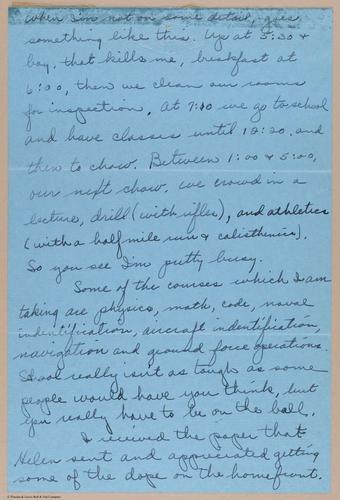 when I'm not on some detail, goes
something like this. Up at 5:30 &
boy, that kills me, breakfast at
6:00, then we clean our rooms
for inspection. At 7:40 we go to school
and have classes until 12:20, and
then to chow. Between 1:00 & 5:00,
our next chow, we crowd in a
lecture, drill (with rifles), and athletics
(with a half mile run & calisthenics).
So you see I'm pretty busy.
Some of the courses which I am
taking are physics, math, code, naval
indentification, aircraft indentification,
navigation and ground force operations.
School really isn't as tough as some
people would have you think, but
you really have to be on the ball.
I recived the paper that
Helen sent and appreciated getting
some of the dope on the homefront.